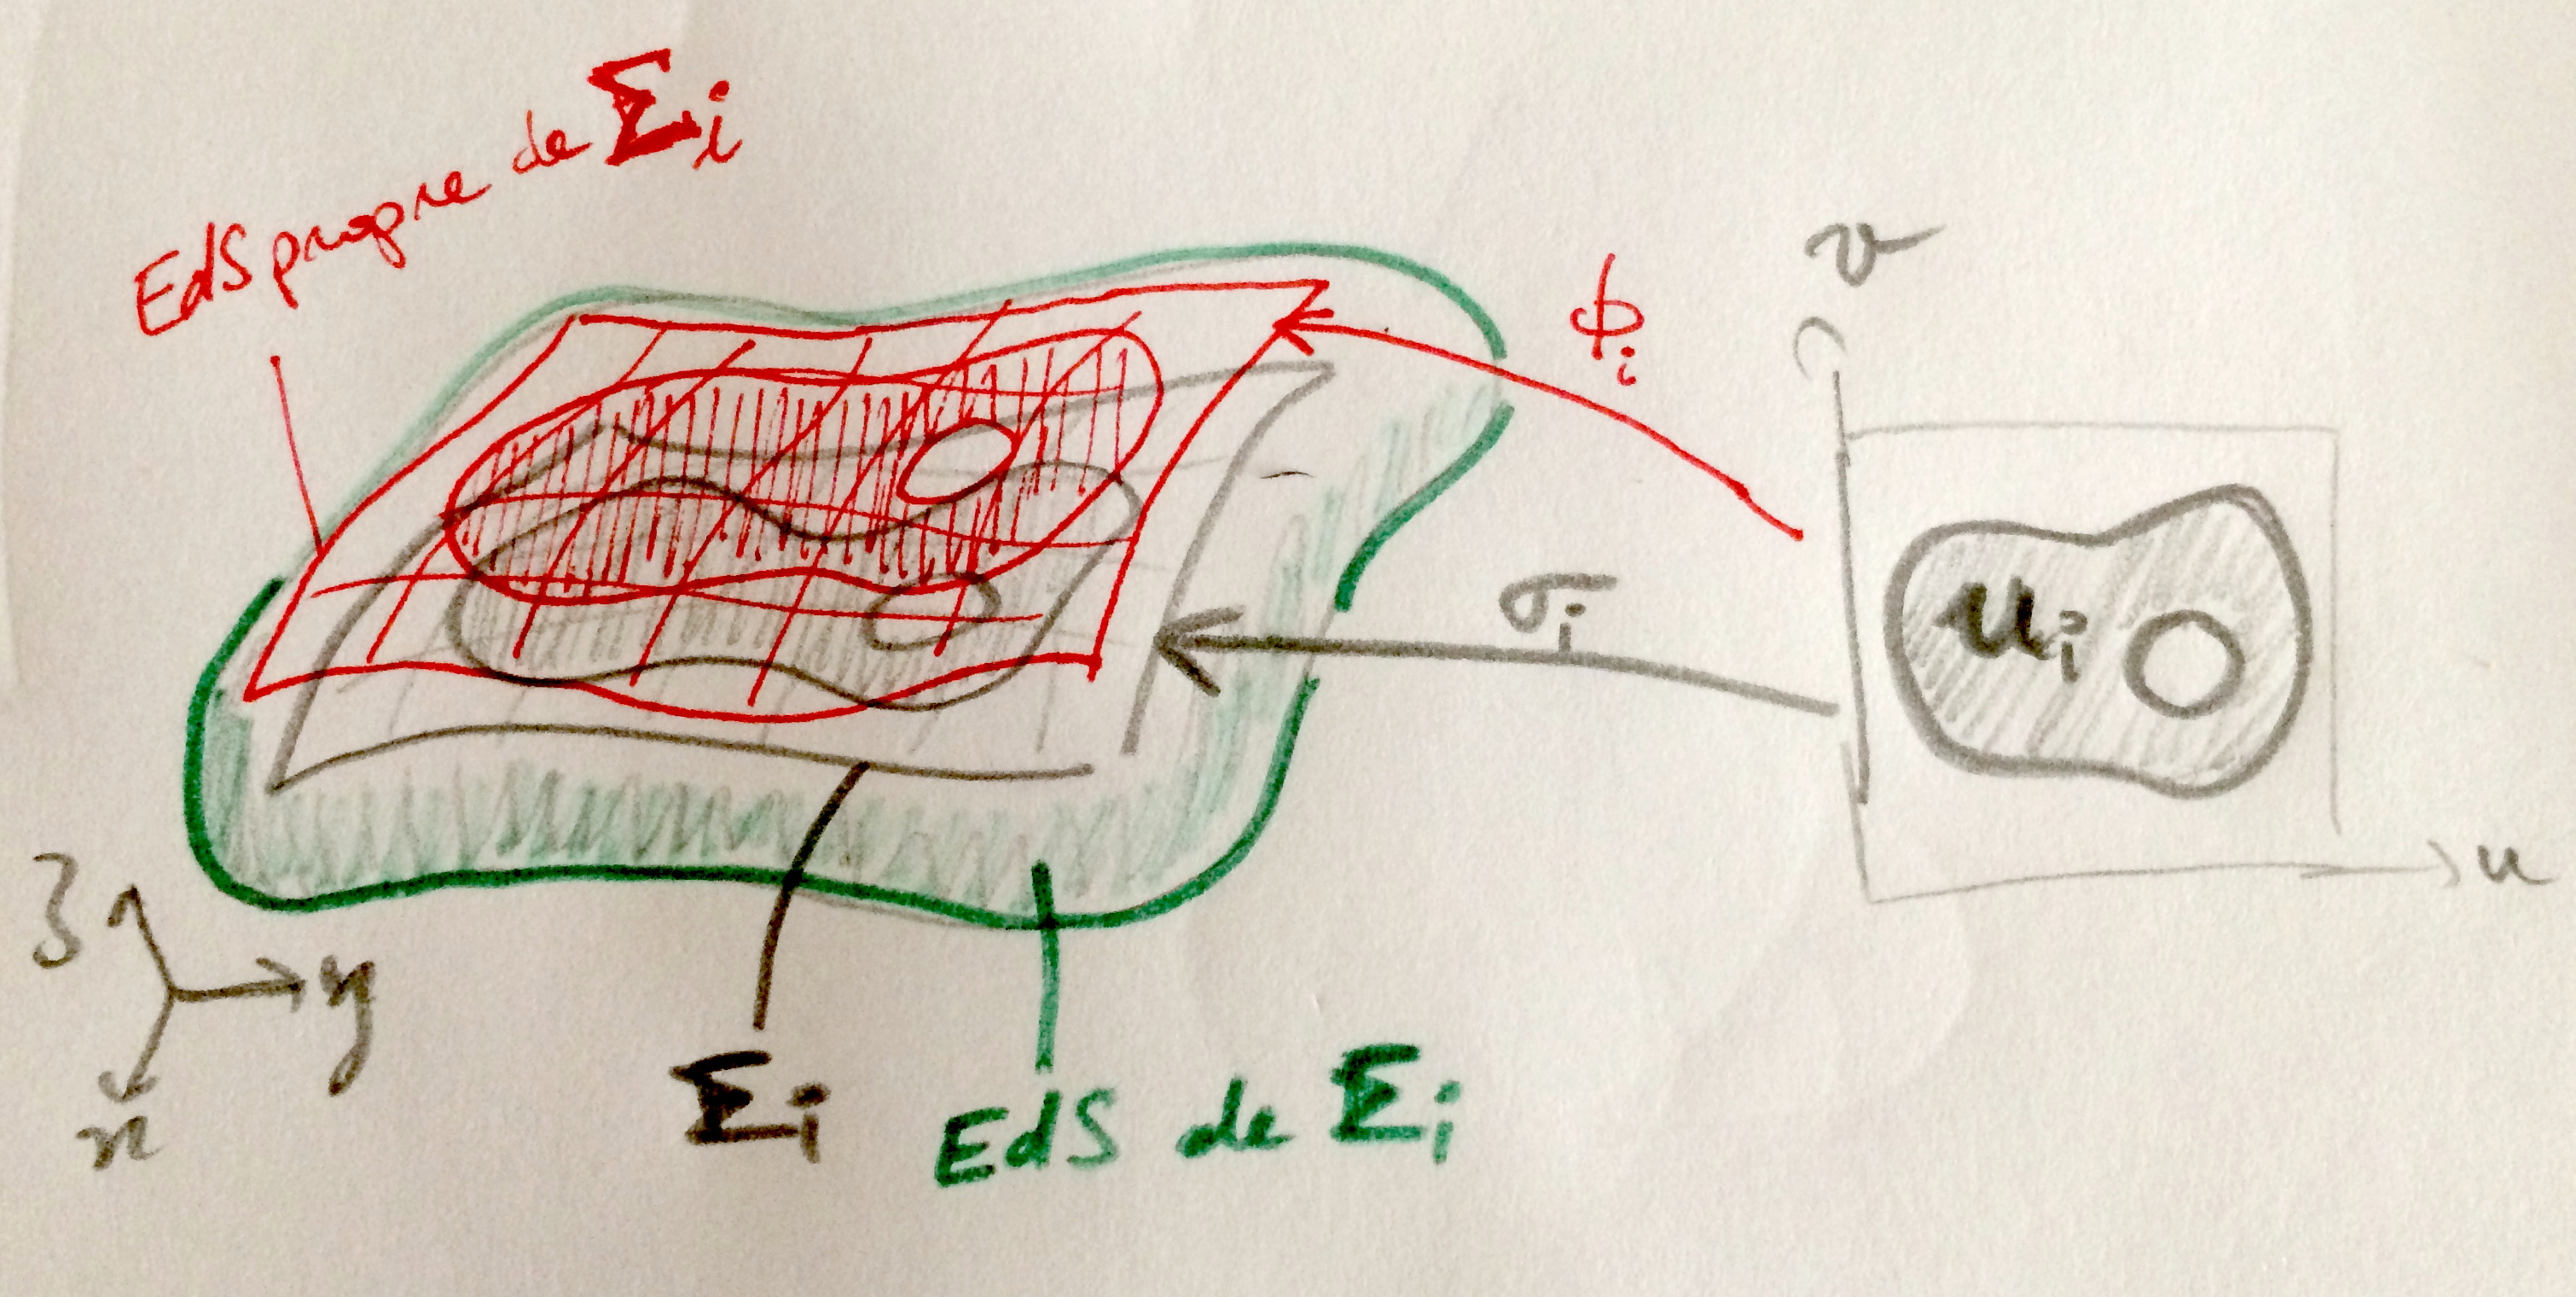 EdS propre de Σi
v
ϕi
σi
Ui
u
z
y
x
Σi
EdS de Σi